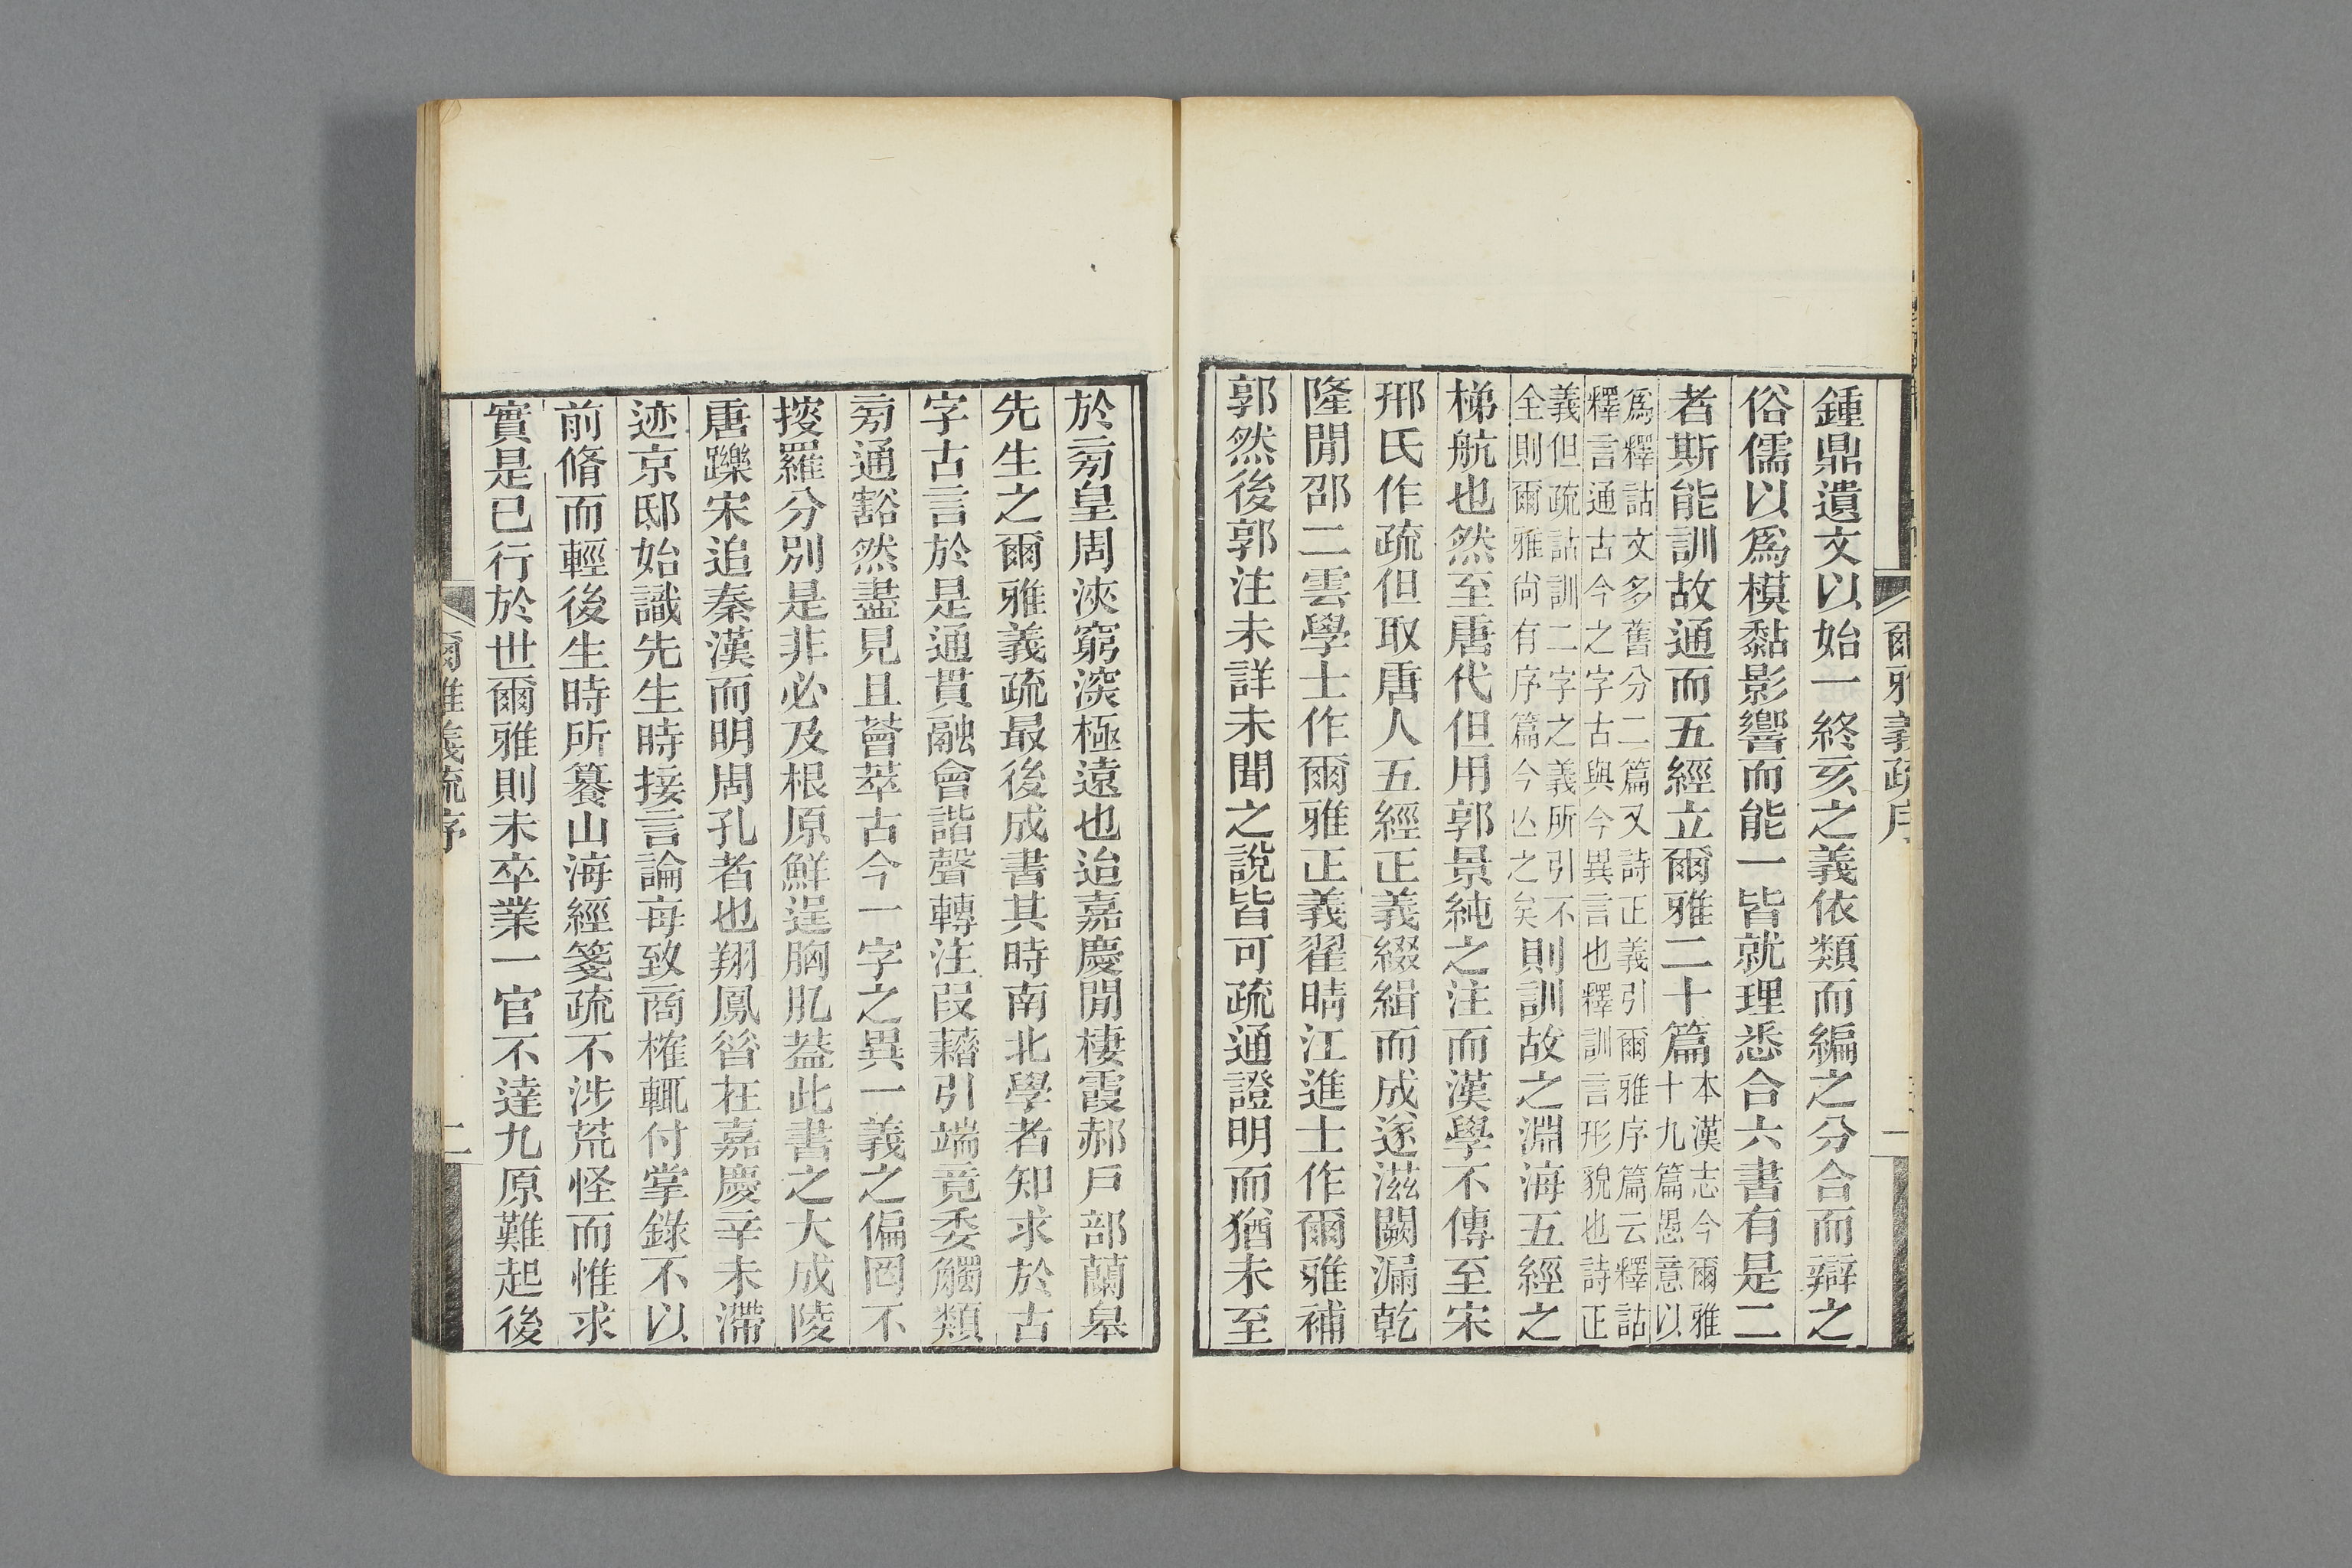 爾雅義疏序
一
鍾鼎遺文以始一終亥之義依類而編之分合而辯之
俗儒以爲模黏影響而能一皆就理悉合六書有是二
者斯能訓故通而五經立爾雅二十篇本漢志今爾雅
十九篇愚意以
爲釋詁文多舊分二篇又詩正義引爾雅序篇云釋詁
釋言通古今之字古與今異言也釋訓言形貌也詩正
義但疏詁訓二字之義所引不
全則爾雅尙有序篇今亾之矣則訓故之淵海五經之
梯航也然至唐代但用郭景純之注而漢學不傳至宋
邢氏作疏但取唐人五經正義綴緝而成遂滋闕漏乾
隆閒邵二雲學士作爾雅正義翟晴江進士作爾雅補
郭然後郭注未詳未聞之說皆可疏通證明而猶未至
於旁皇周浹窮深極遠也迨嘉慶閒棲霞郝戶部蘭皋
先生之爾雅義疏最後成書其時南北學者知求於古
字古言於是通貫融會諧聲轉注叚藉引端竟委觸類
旁通豁然盡見且薈萃古今一字之異一義之偏罔不
搜羅分別是非必及根原鮮逞胸肊葢此書之大成陵
唐躒宋追秦漢而明周孔者也翔鳳昝在嘉慶辛未滯
迹京邸始識先生時接言論每致商榷輒付掌錄不以
前脩而輕後生時所纂山海經箋疏不涉荒怪而惟求
實是已行於世爾雅則未卒業一官不達九原難起後
爾雅義疏序
二